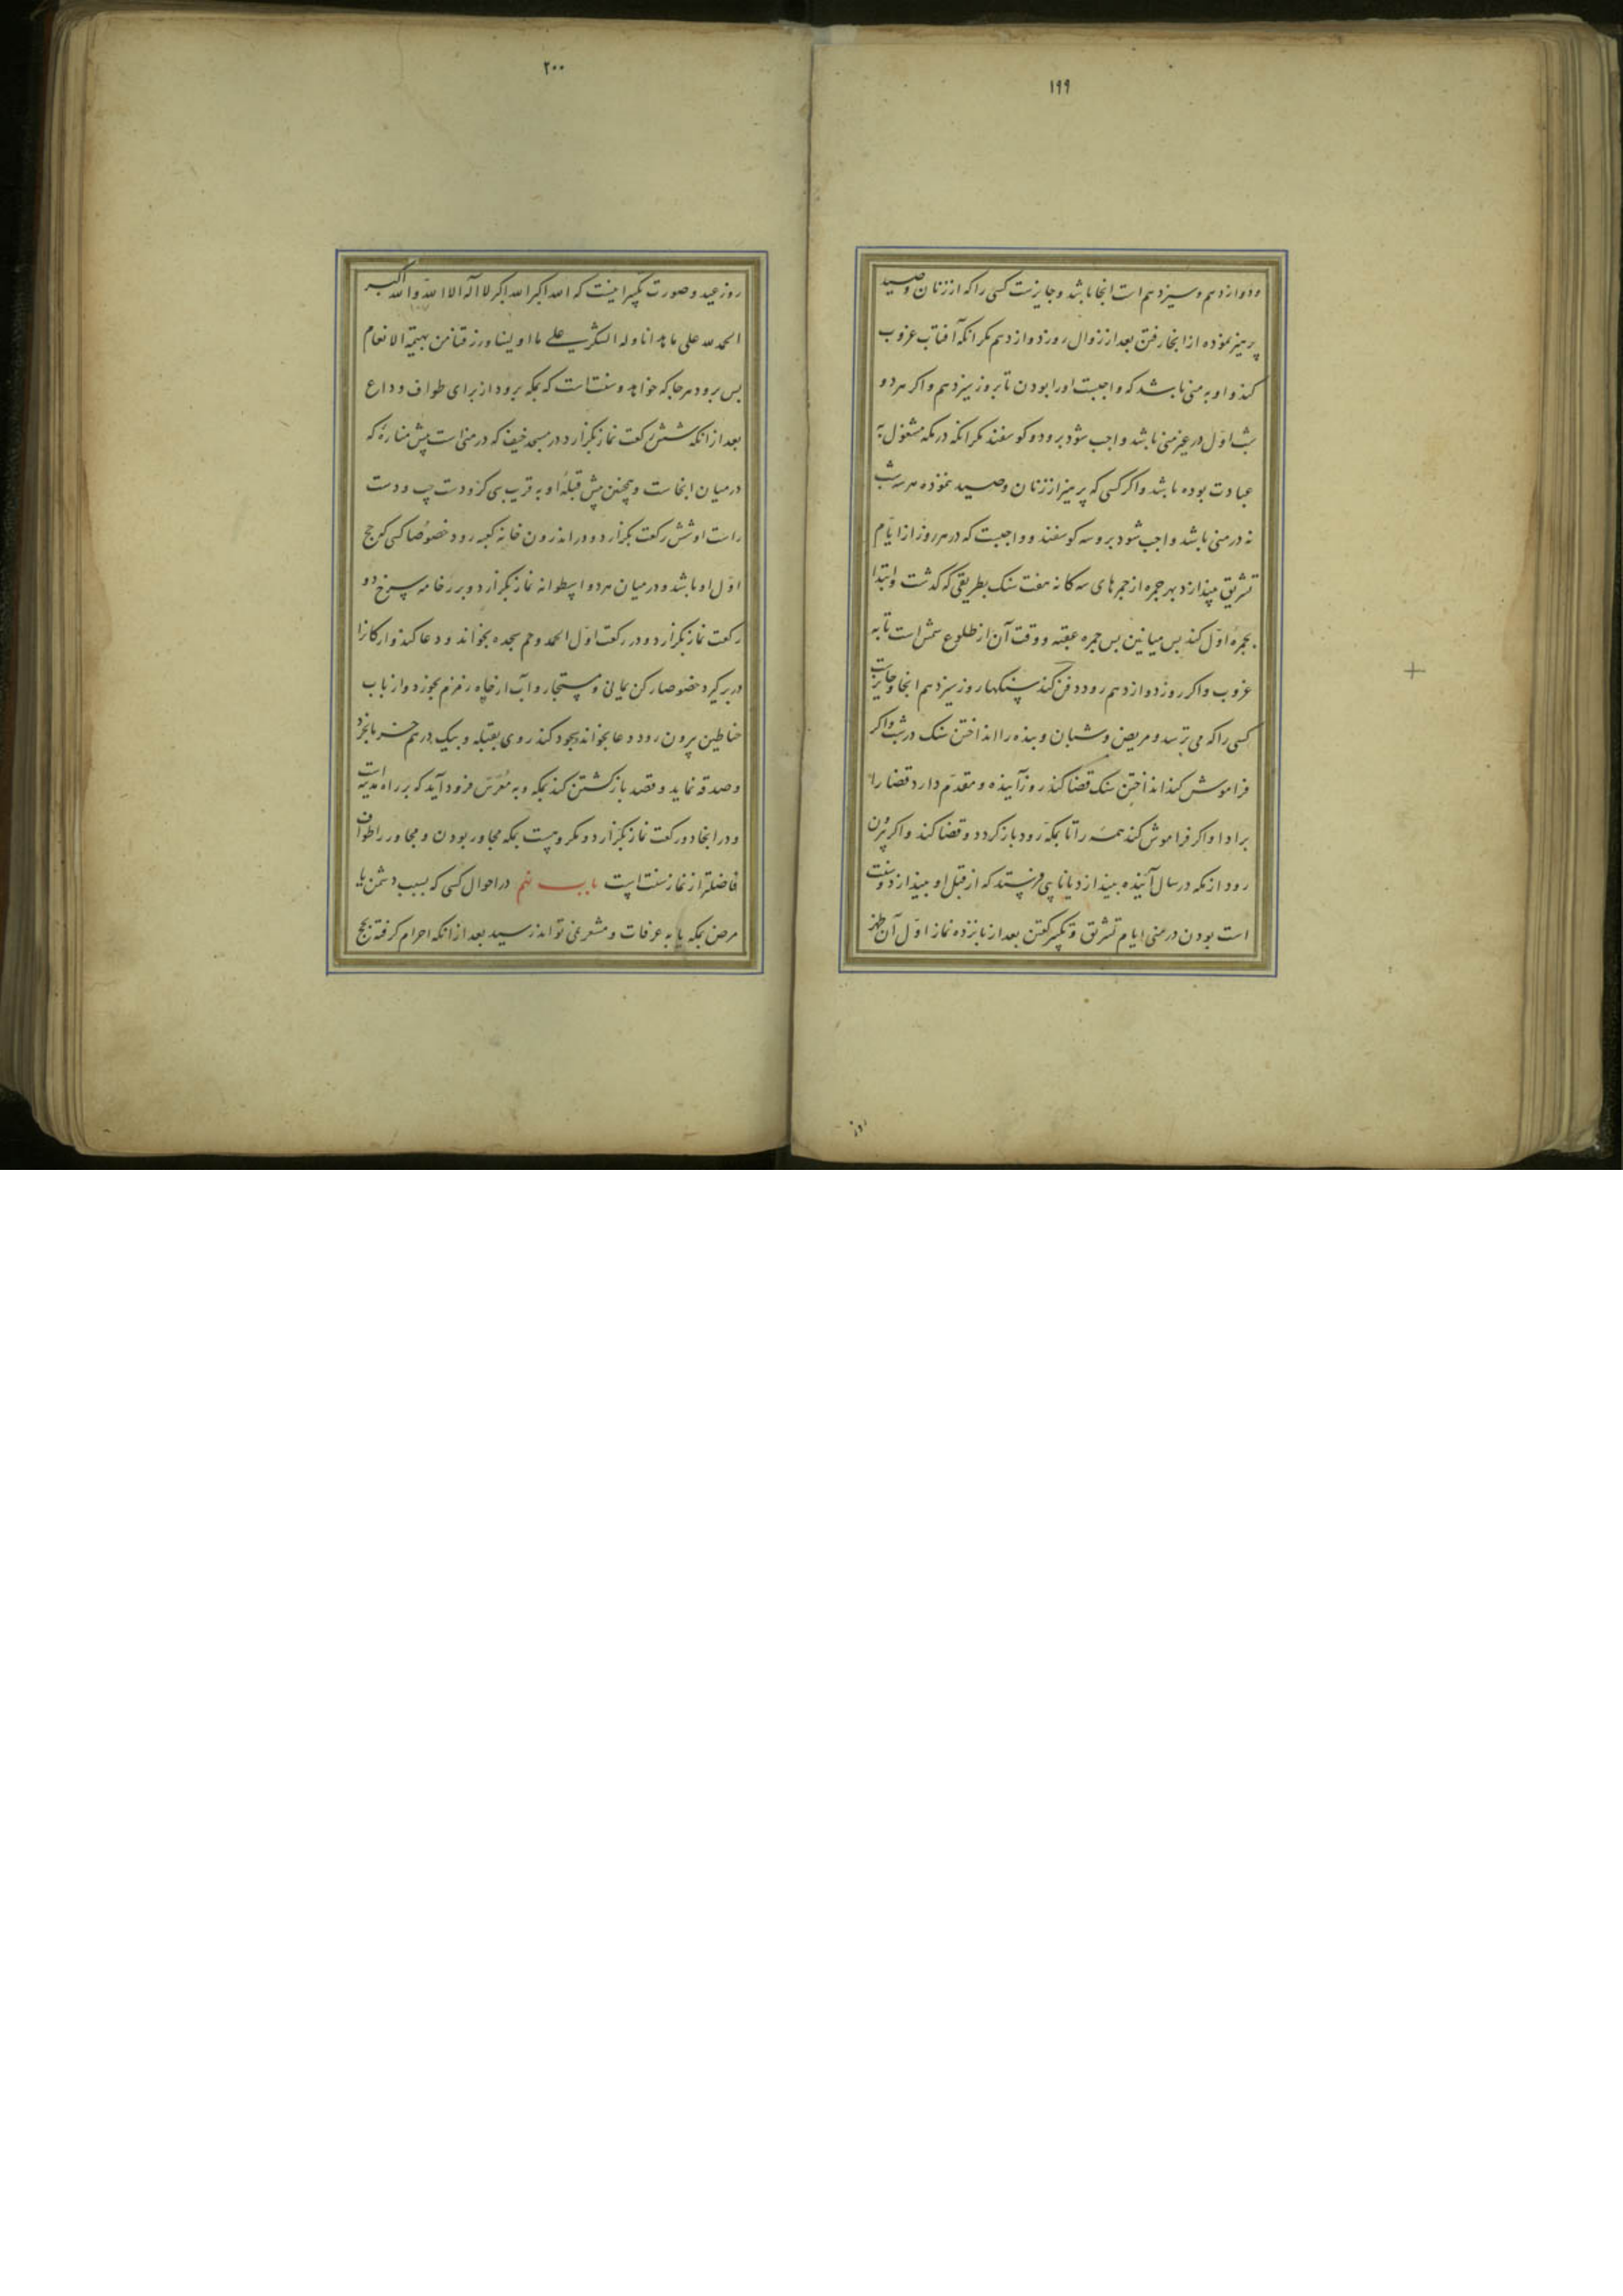 ۱۹۹
ودوازدهم وسیزدهم است انجا باشد وجایزست کسی را که از زنان وصید
پرهیز نموده از انجا رفتن بعد از زوال روز دوازدهم مکر انکه آفتاب غروب
کند واو به منی باشد که واجبست اورا بودن تا بروز سیزدهم واکر هر دو
شب اول در غیر منی باشد واجب شود برو دو کوسفند مکر انکه در مکه مشغول به
عبادت بوده باشد واکر کسی که پرهیز از زنان وصید ننموده هر سه شب
نه در منی باشد واجب شود برو سه کوسفند وواجبست که در هر روز از ایّام
تشریق بیندازد بهر جمره از جمرهای سه کانه هفت سنک بطریقی که کذشت وابتدا
بجمرهٔ اوّل کند پس میانین پس جمره عقبه ووقت آن از طلوع شمس است تا به
غروب واکر روز دوازدهم رود دفن کند سنکهاء روز سیزدهم انجا وجایزست
کسی را که می ترسد ومریض وشبان وبنده را انداختن سنک در شب واکر
فراموش کند انداختن سنک قضا کند روز آینده ومقدّم دارد قضا را
بر ادا واکر فراموش کند همه را تا بمکه رود باز کردد وقضا کند واکر بیرون
رود از مکه در سال آینده بیندازد یا نایبی فرستد که از قبل او بیندازد وسنت
است بودن در منی ایام تشریق وتکبیر کفتن بعد از پانزده نماز اوّل آن ظهر
روز
۲۰۰
روز عید وصورت تکبیر اینست که الله اکبر الله اکبر لا اله الا الله والله اکبر
الحمد لله علی ما هدانا وله الشکر علی ما اولینا ورزقنا من بهیمة الانعام
پس برود هرجا که خواهد وسنت است که بمکه برود از برای طواف وداع
بعد از انکه شش رکعت نماز بکزارد در مسجد خیف که در منی است پیش مناره که
در میان انجاست وهمچنین پیش قبلهٔ او به قریب سی کز ودست چپ ودست
راست او شش رکعت بکزارد ودر اندرون خانه کعبه رود خصوصا کسی که حج
اوّل او باشد ودر میان هر دو اسطوانه نماز بکزارد وبر رخامه سرخ دو
رکعت نماز بکزارد ودر رکعت اوّل الحمد وحم سجده بخواند ودعا کند وارکانرا
در بر کیرد خصوصا رکن یمانی ومستجار وآب از چاه زمزم بخورد واز باب
حناطین بیرون رود ودعا بخواند وسجود کند روی بقبله وبیک درهم خرما بخرد
وصدقه نماید وقصد باز کشتن کند بمکه وبه معرّس فرود آید که بر راه مدینه است
ودر انجا دو رکعت نماز بکزارد ومکروهست بمکه مجاور بودن ومجاور را طواف
فاضلتر از نماز سنت است باب نهم در احوال کسی که بسبب دشمن یا
مرض بمکه یا به عرفات ومشعر نمی تواند رسید بعد از انکه احرام کرفته بحج